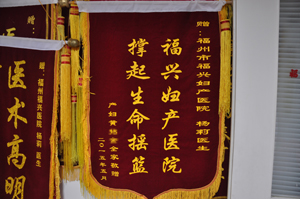 赠:福州市福兴妇产医院 杨莉医生
福兴妇产医院
撑起生命摇篮
二〇一五年五月
赠:福州福兴医院 杨莉 医生
医术高明